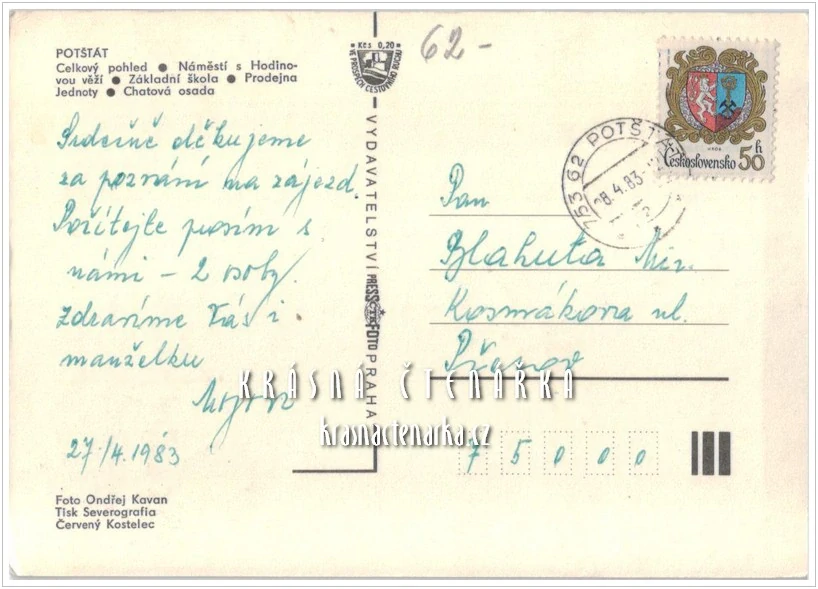 POTŠTÁT
Celkový pohled ● Náměstí s Hodino-
vou věží ● Základní škola ● Prodejna
Jednoty ● Chatová osada
Kčs 0,20
VE PROSPĚCH CESTOVNÍHO RUCHU
62-
Československo 50 h
753 62 POTŠTÁT
28.4.83
Srdečně děkujeme
za pozvání na zájezd.
Počítejte prosím s
námi – 2 osoby.
Zdravíme Vás i
manželku
27/4.1983
VYDAVATELSTVÍ PRESSFOTO PRAHA
ČTK
Pan
Blahuta Mir.
Kosmákova ul.
Přerov
75000
KRÁSNÁ ČTENÁŘKA
krasnactenarka.cz
Foto Ondřej Kavan
Tisk Severografia
Červený Kostelec